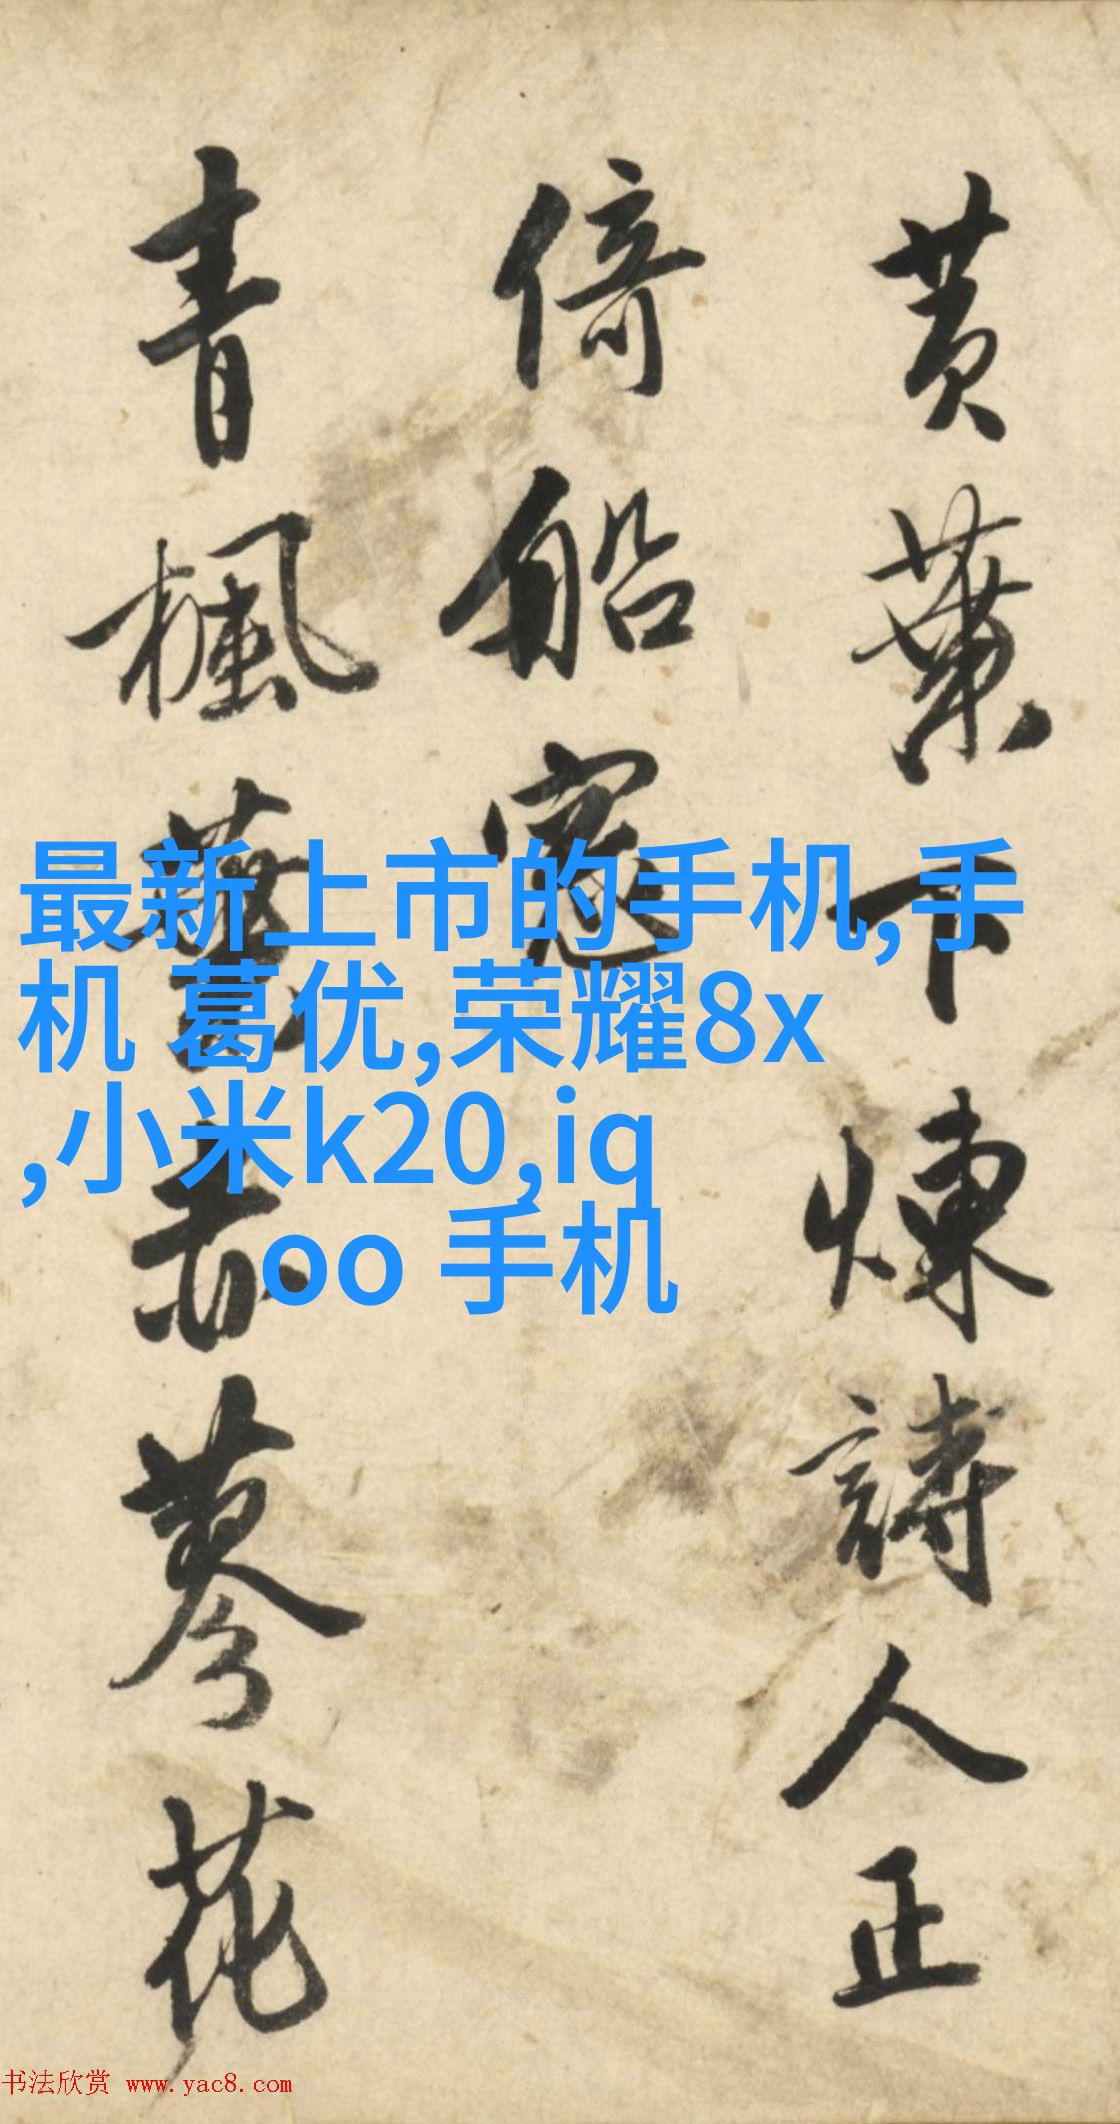 黄葉下煉詩人正
倚船窓
青楓
蓼花
最新上市的手机,手
机 葛优,荣耀8x
,小米k20,iq
oo 手机
书法欣赏 www.yac8.com